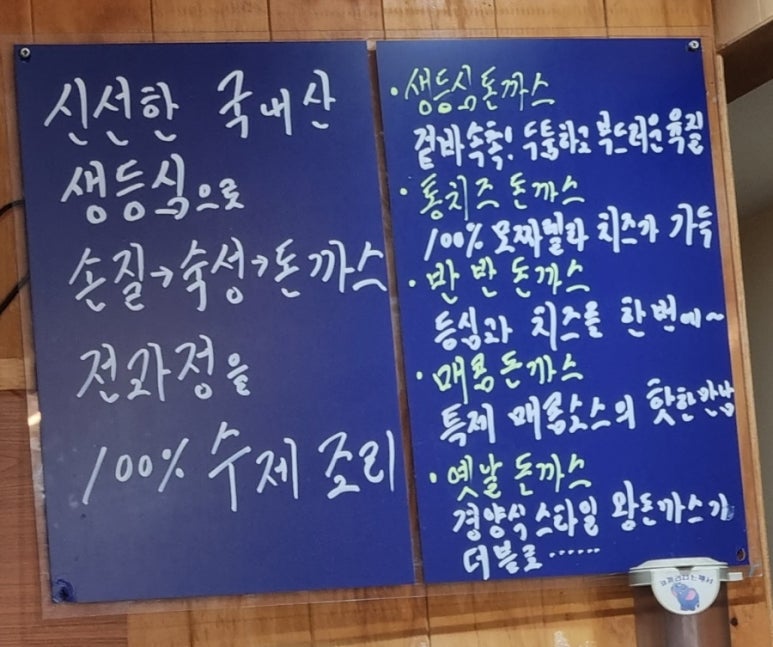 신선한 국내산
생등심으로
손질→숙성→돈까스
전과정을
100% 수제 조리
·생등심돈까스
겉바속촉! 두툼하고 부드러운 육질
·통치즈 돈까스
100% 모짜렐라 치즈가 가득
·반반돈까스
등심과 치즈를 한번에~
·매콤돈까스
특제 매콤소스의 핫한반밤
·옛날돈까스
경양식스타일 왕돈까스가
더블로......